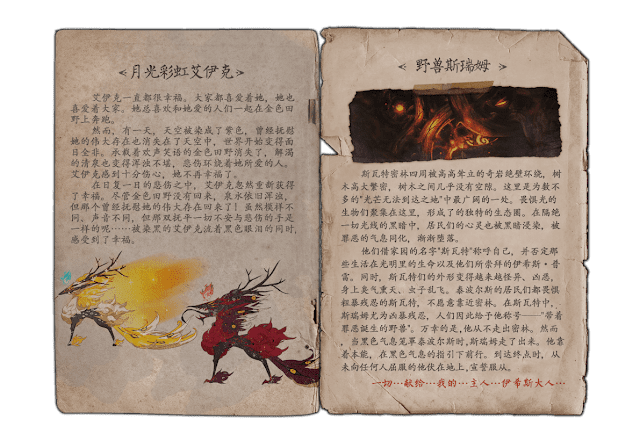 月光彩虹艾伊克
艾伊克一直都很幸福。大家都喜爱着她，她也
喜爱着大家。她总喜欢和她爱的人们一起在金色田
野上奔跑。
然而，有一天，天空被染成了紫色，曾经抚慰
她的伟大存在也消失在了天空中，世界开始变得面
目全非。承载着欢声笑语的金色田野消失了，解渴
的清泉也变得浑浊不堪，悲伤环绕着她所爱的人。
艾伊克感到十分伤心，她不再幸福了。
在日复一日的悲伤之中，艾伊克忽然重新获得
了幸福。尽管金色田野没有回来，泉水依旧浑浊，
但那个曾经抚慰她的伟大存在回来了！虽然模样不
同。声音不同，但那双抚平一切不安与悲伤的手是
一样的呢……被染黑的艾伊克流着黑色眼泪的同时，
感受到了幸福。
野兽斯瑞姆
斯瓦特密林四周被高高耸立的奇岩绝壁环绕，树
木高大繁密，树木之间几乎没有空隙。这里是为数不
多的"光芒无法到达之地"中最广阔的一处。畏惧光的
生物们聚集在这里，形成了的独特的生态圈。在隔绝
一切光线的黑暗中，居民们的心灵也被黑暗浸染，被
罪恶的气息同化，渐渐堕落。
他们借家园的名字"斯瓦特"称呼自己，并否定那
些生活在光明里的生命以及他们所崇拜的伊希斯·普
雷。同时，斯瓦特们的外形变得越来越怪异、凶恶，
身上臭气熏天、虫子乱飞。泰波尔斯的居民们都畏惧
粗暴残忍的斯瓦特，不愿意靠近密林。在斯瓦特中，
斯瑞姆尤为凶暴残恶，人们因此给予他称号——"带着
罪恶诞生的野兽"。万幸的是，他从不走出密林。然而
，当黑色气息笼罩泰波尔斯时，斯瑞姆走了出来。他靠
着本能，在黑色气息的指引下前行。到达终点时，从
未向任何人屈服的他伏在地上，宣誓服从。
一切…献给…我的…主人…伊希斯大人…